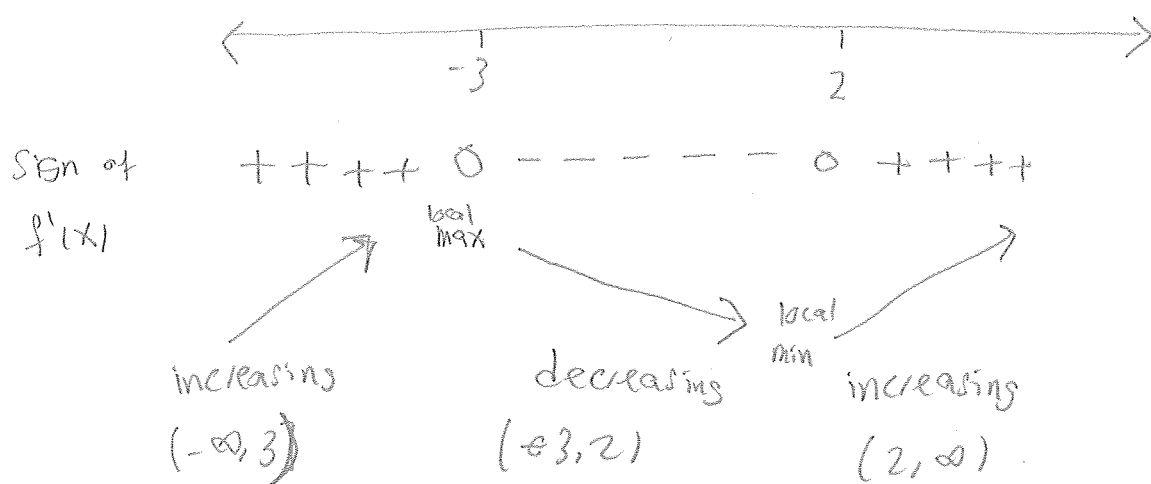 -3 2
Sign of + + + + 0 - - - - - 0 + + + +
f'(x)
local
max
local
min
increasing decreasing increasing
(-∞, 3) (-3, 2) (2, ∞)